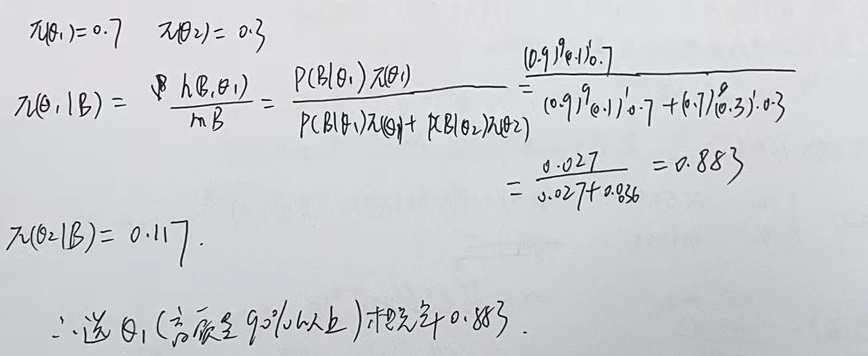 π(θ₁)=0.7 π(θ₂)=0.3
π(θ₁|B) = h(B,θ₁)/mB = P(B|θ₁)π(θ₁)/(P(B|θ₁)π(θ₁)+P(B|θ₂)π(θ₂)) = (0.9)⁹(0.1)¹0.7/((0.9)⁹(0.1)¹0.7+(0.7)⁹(0.3)¹0.3)
= 0.027/(0.027+0.036) = 0.883
π(θ₂|B) = 0.117.
∴选 θ₁(高质量90%以上)概率0.883.